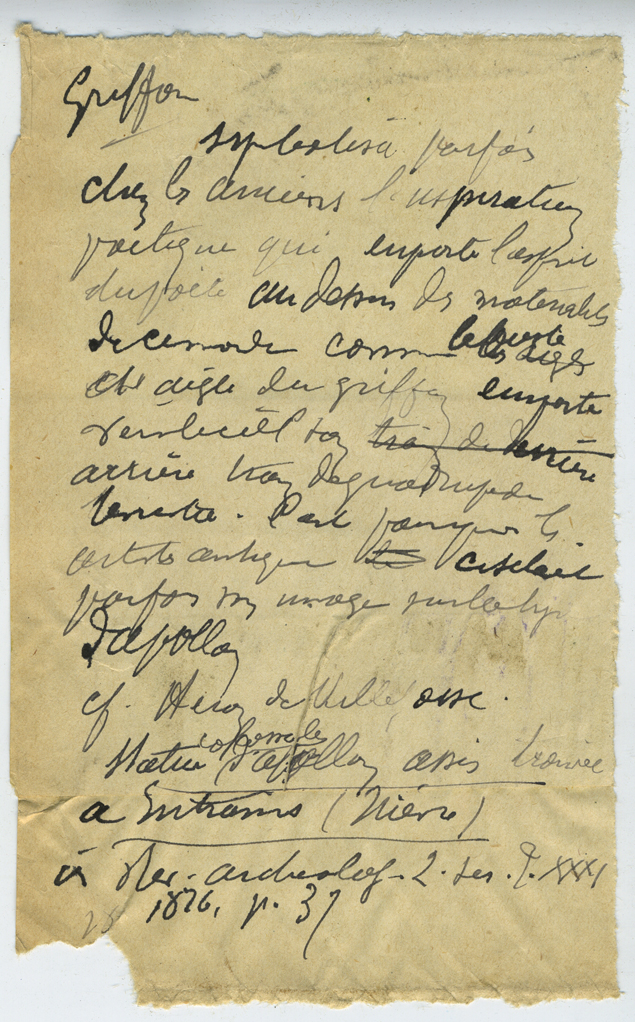 Griffon
symbolisa parfois
chez les anciens l'inspiration
poétique qui emporte l'esprit
du poète au dessus des matérialités
de ce monde comme le buste
aigle du griffon emporte
vers le ciel son train de derrière
arrière train de quadrupède
terrestre. C'est pourquoi les
artistes antiques ciselait
parfois son image sur la lyre
d'Apollon
cf. Heron de Villefosse.
Statue colossale d'Apollon assis trouvée
a Entrains (Nièvre)
in Rev. archeolog. 2. ser. T. XXXI
1876, p. 37